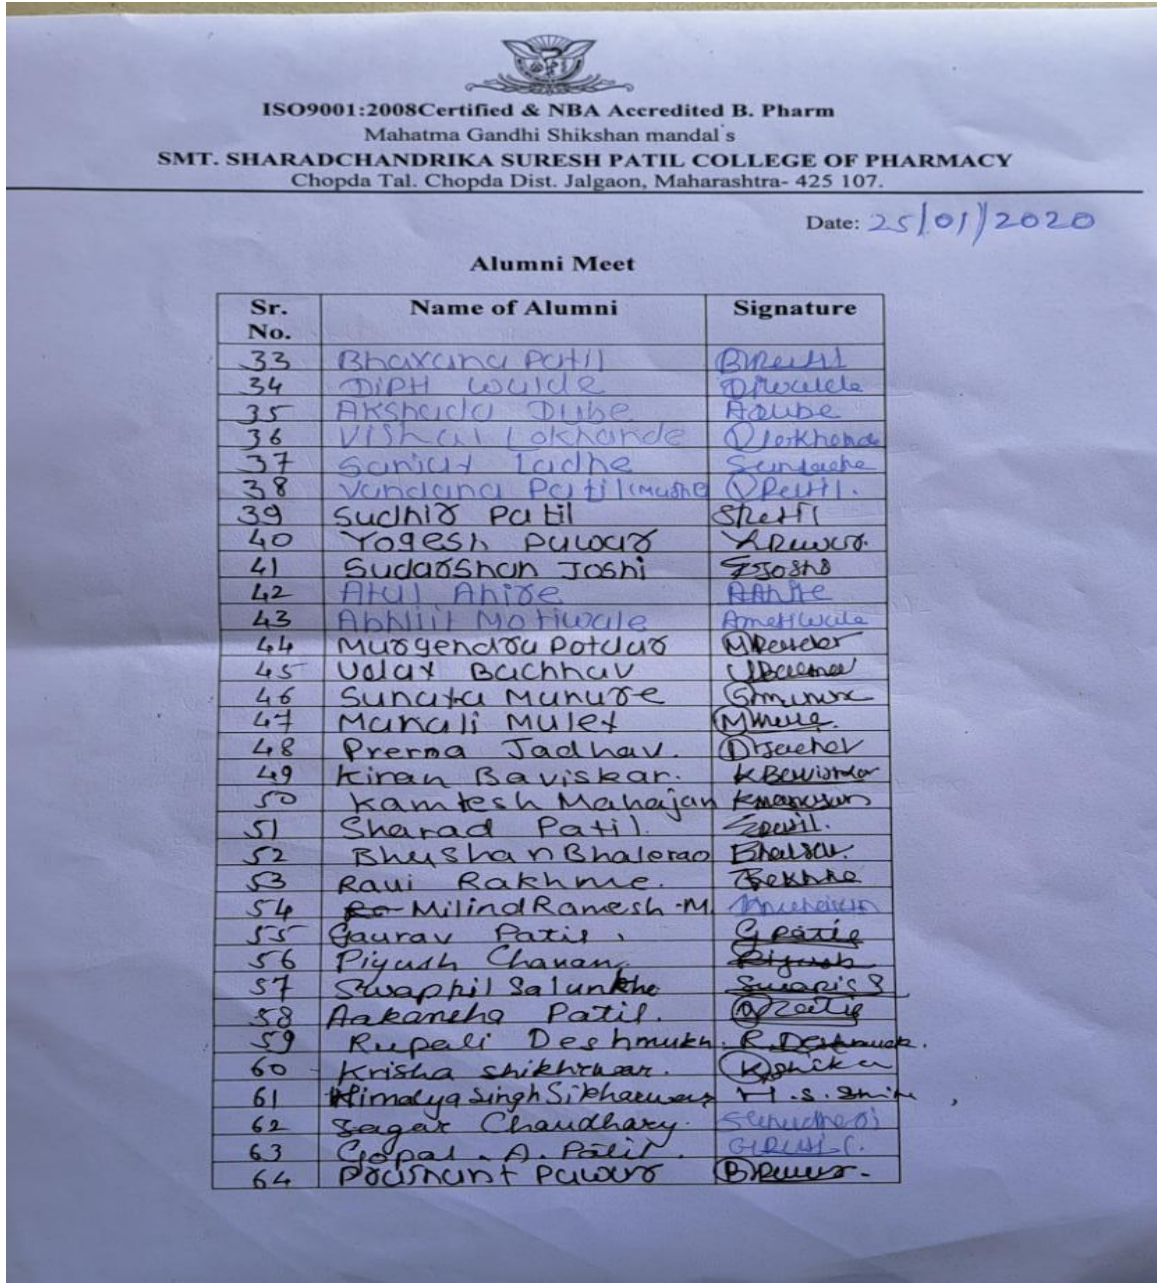 ISO9001:2008Certified & NBA Accredited B. Pharm
Mahatma Gandhi Shikshan mandal's
SMT. SHARADCHANDRIKA SURESH PATIL COLLEGE OF PHARMACY
Chopda Tal. Chopda Dist. Jalgaon, Maharashtra- 425 107.
Date: 25/01/2020
Alumni Meet
Sr. No. Name of Alumni Signature
33 Bhavana Patil BPatil
34 Dipti Walde DWalde
35 Akshada Dube ADube
36 Vishal Lokhande VLokhande
37 Sanjay Ladhe
38 Vandana Patil VPatil.
39 Sudhir Patil SPatil
40 Yogesh Pawar YPawar.
41 Sudarshan Joshi SJoshi
42 Atul Ahire AAhire
43 Abhijit Motiwale AMotiwale
44 Murgendra Potdar
45 Uday Bachhav
46 Sunayta Manure
47 Manali Muley
48 Prerna Jadhav.
49 Kiran Baviskar. KBaviskar
50 Kamlesh Mahajan KMahajan
51 Sharad Patil. SPatil.
52 Bhushan Bhalerao
53 Ravi Rakhme.
54 Milind Ramesh .M.
55 Gaurav Patil. G Patil
56 Piyush Chavan Piyush
57 Swapnil Salunkhe
58 Aakansha Patil.
59 Rupali Deshmukh. R. Deshmukh.
60 Krisha Shikhrwar.
61 Himalya Singh H.S.
62 Sagar Chaudhary.
63 Gopal . A. Patil.
64 Prashant Pawar